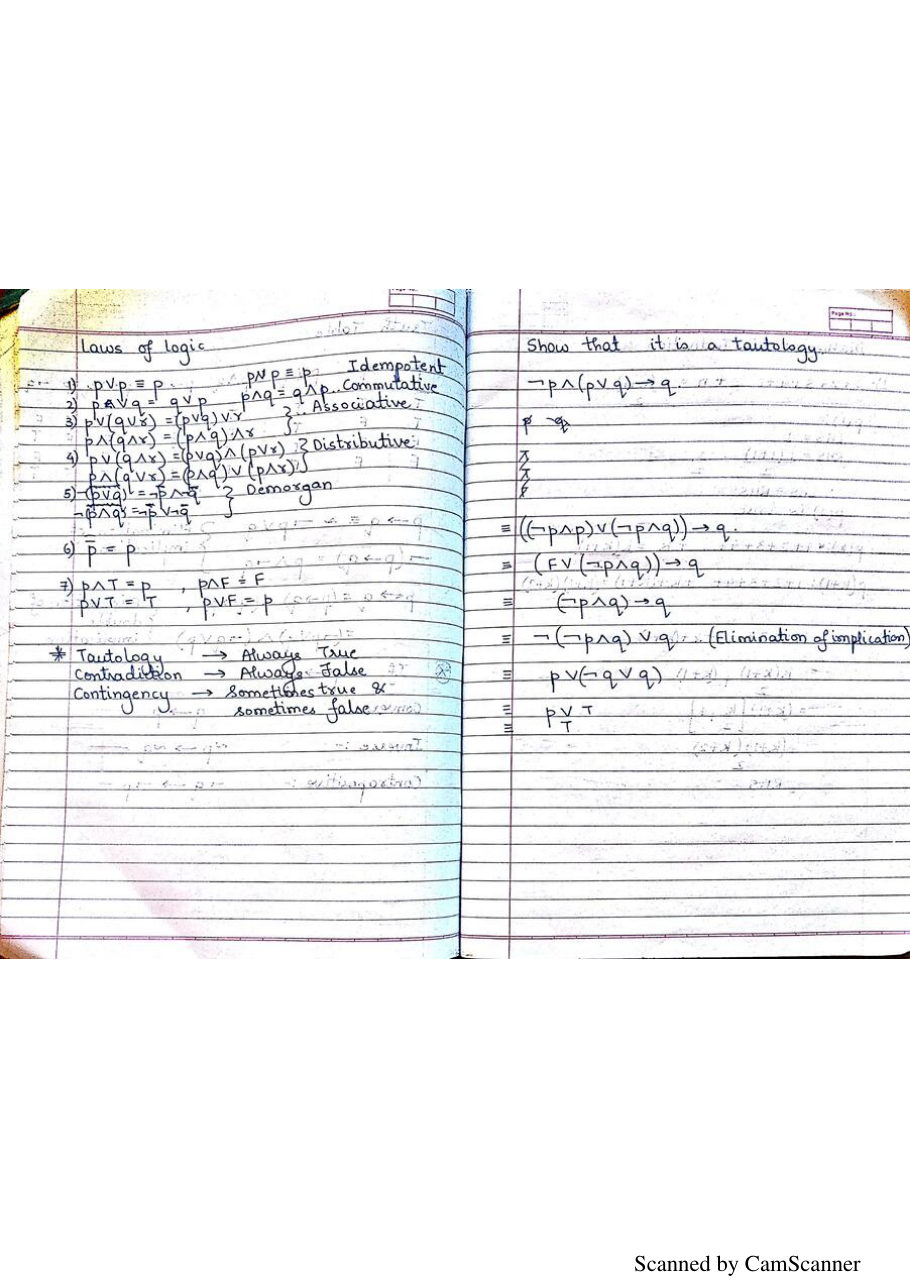 Laws of logic
1) p∨p ≡ p p∧p ≡ p Idempotent
2) p∨q = q∨p p∧q = q∧p Commutative
3) p∨(q∨r) = (p∨q)∨r } Associative
p∧(q∧r) = (p∧q)∧r
4) p∨(q∧r) = (p∨q)∧(p∨r) } Distributive
p∧(q∨r) = (p∧q)∨(p∧r)
5) ¬(p∨q) = ¬p∧¬q } Demorgan
¬(p∧q) = ¬p∨¬q
6) p̿ = p
7) p∧T = p , p∧F = F
p∨T = T , p∨F = p
* Tautology → Always True
Contradiction → Always False
Contingency → Sometimes true &
sometimes false
Page No.:
Show that it is a tautology.
¬p∧(p∨q)→q
≡ ((¬p∧p)∨(¬p∧q))→q.
≡ (F∨(¬p∧q))→q
≡ (¬p∧q)→q
≡ ¬(¬p∧q)∨q (Elimination of implication)
≡ p∨(¬q∨q)
≡ p∨T
≡ T
Scanned by CamScanner